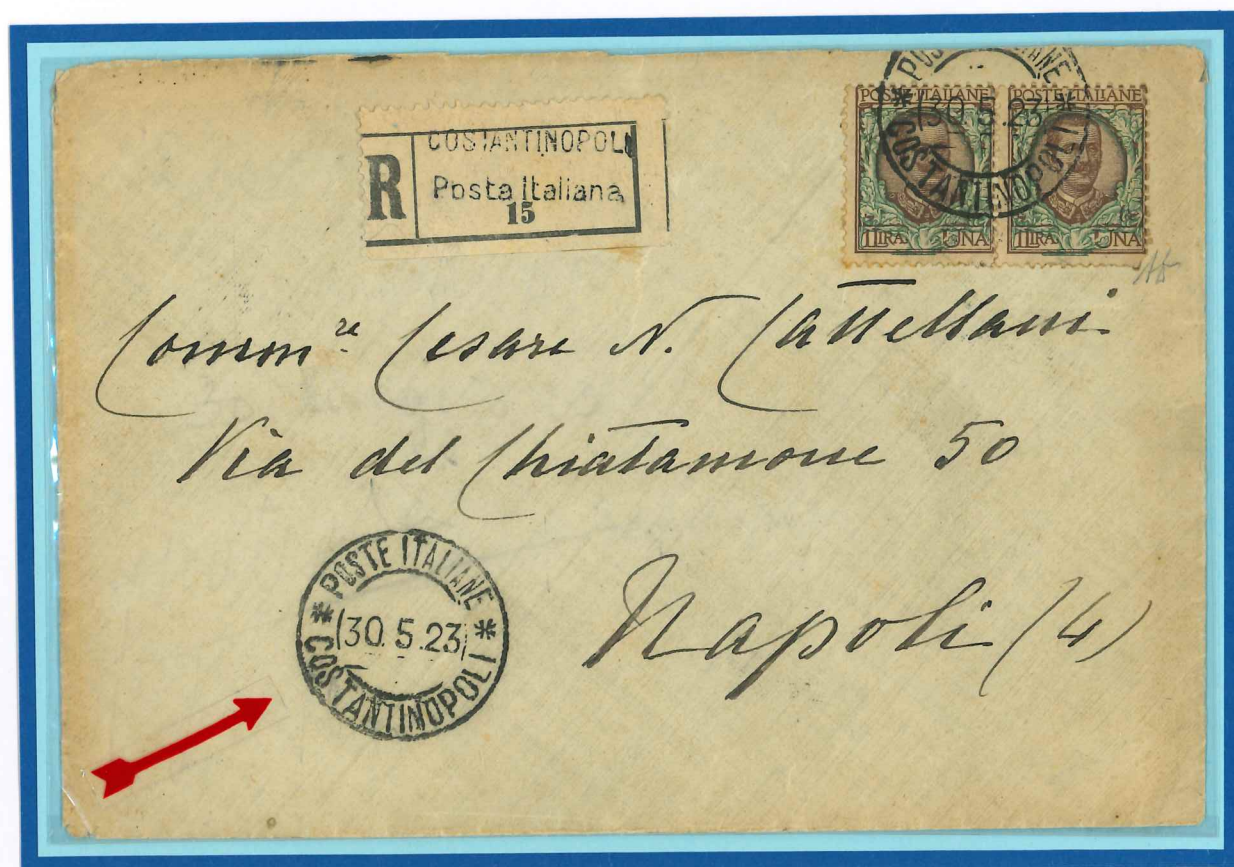 COSTANTINOPOLI
R
Posta Italiana
15
POSTE ITALIANE
30.5.23
COSTANTINOPOLI
POSTE ITALIANE
POSTE ITALIANE
1 LIRA UNA
1 LIRA UNA
Comm.re Cesare N. Cattellani
Via del Chiatamone 50
Napoli (4)
POSTE ITALIANE
30.5.23
COSTANTINOPOLI